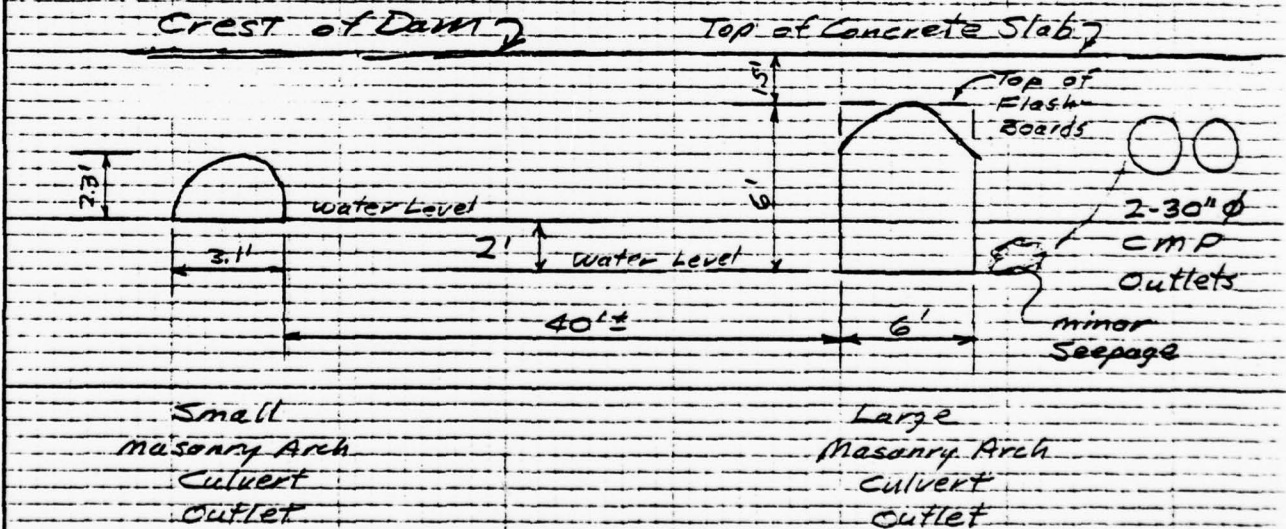 Crest of Dam
Top of Concrete Slab
1.5'
Top of
Flash
Boards
2.3'
6'
Water Level
2-30" φ
CMP
Outlets
3.1'
2'
Water Level
40'±
6'
minor
Seepage
Small
Masonry Arch
Culvert
Outlet
Large
Masonry Arch
Culvert
Outlet